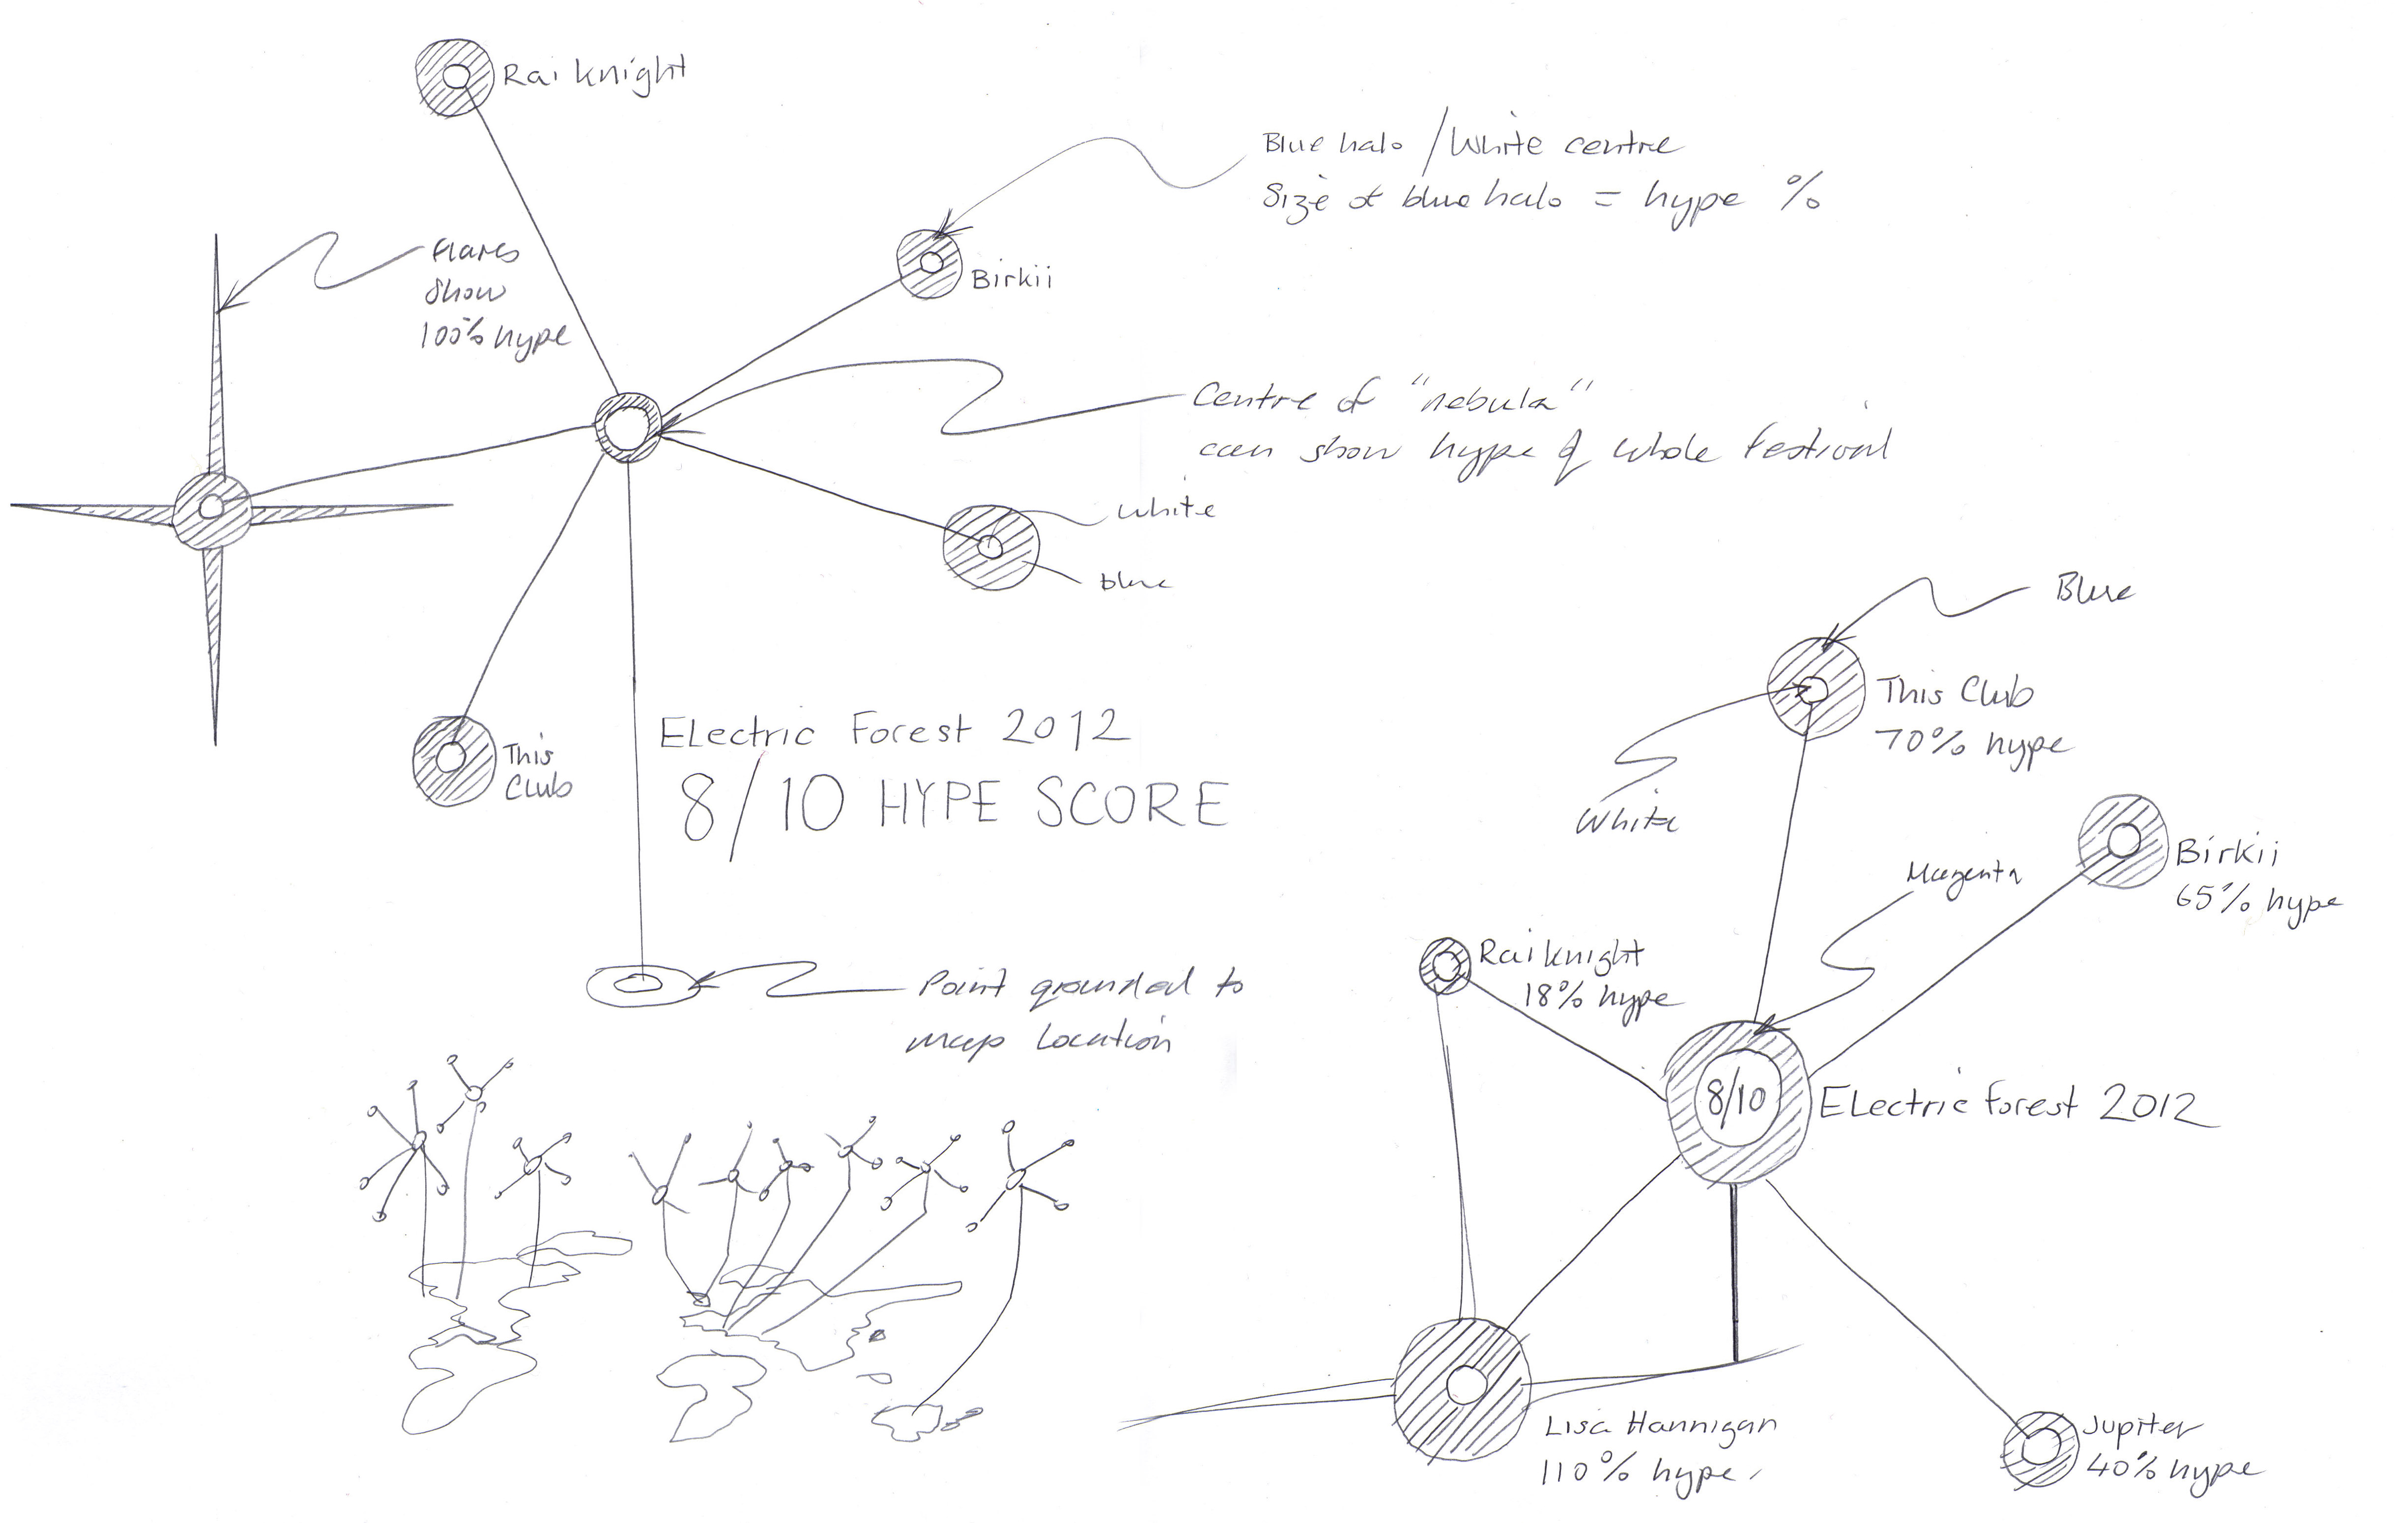 Rai Knight
Blue halo / White centre
Size of blue halo = hype %
Flares
Show
100% hype
Birkii
Centre of "nebula"
can show hype of whole festival
White
blue
This
Club
Electric Forest 2012
8/10 HYPE SCORE
Point grounded to
map location
Blue
This Club
70% hype
White
Birkii
65% hype
Magenta
Rai Knight
18% hype
8/10
Electric Forest 2012
Lisa Hannigan
110% hype
Jupiter
40% hype